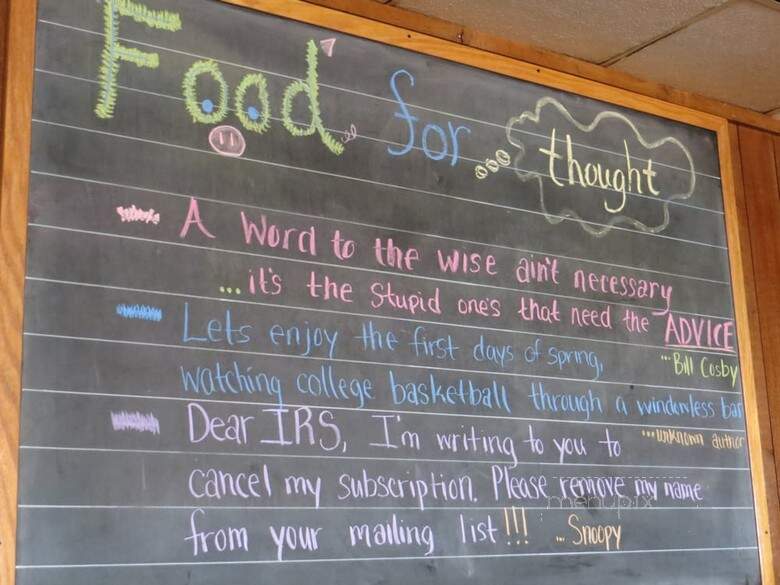 Food for... thought
A Word to the wise ain't necessary
...it's the Stupid one's that need the ADVICE
..."Bill Cosby
Lets enjoy the first days of spring,
watching college basketball through a windowless bar
..."unknown author
Dear IRS, I'm writing to you to
cancel my subscription. Please remove my name
from your mailing list!!! ... Snoopy
menupix